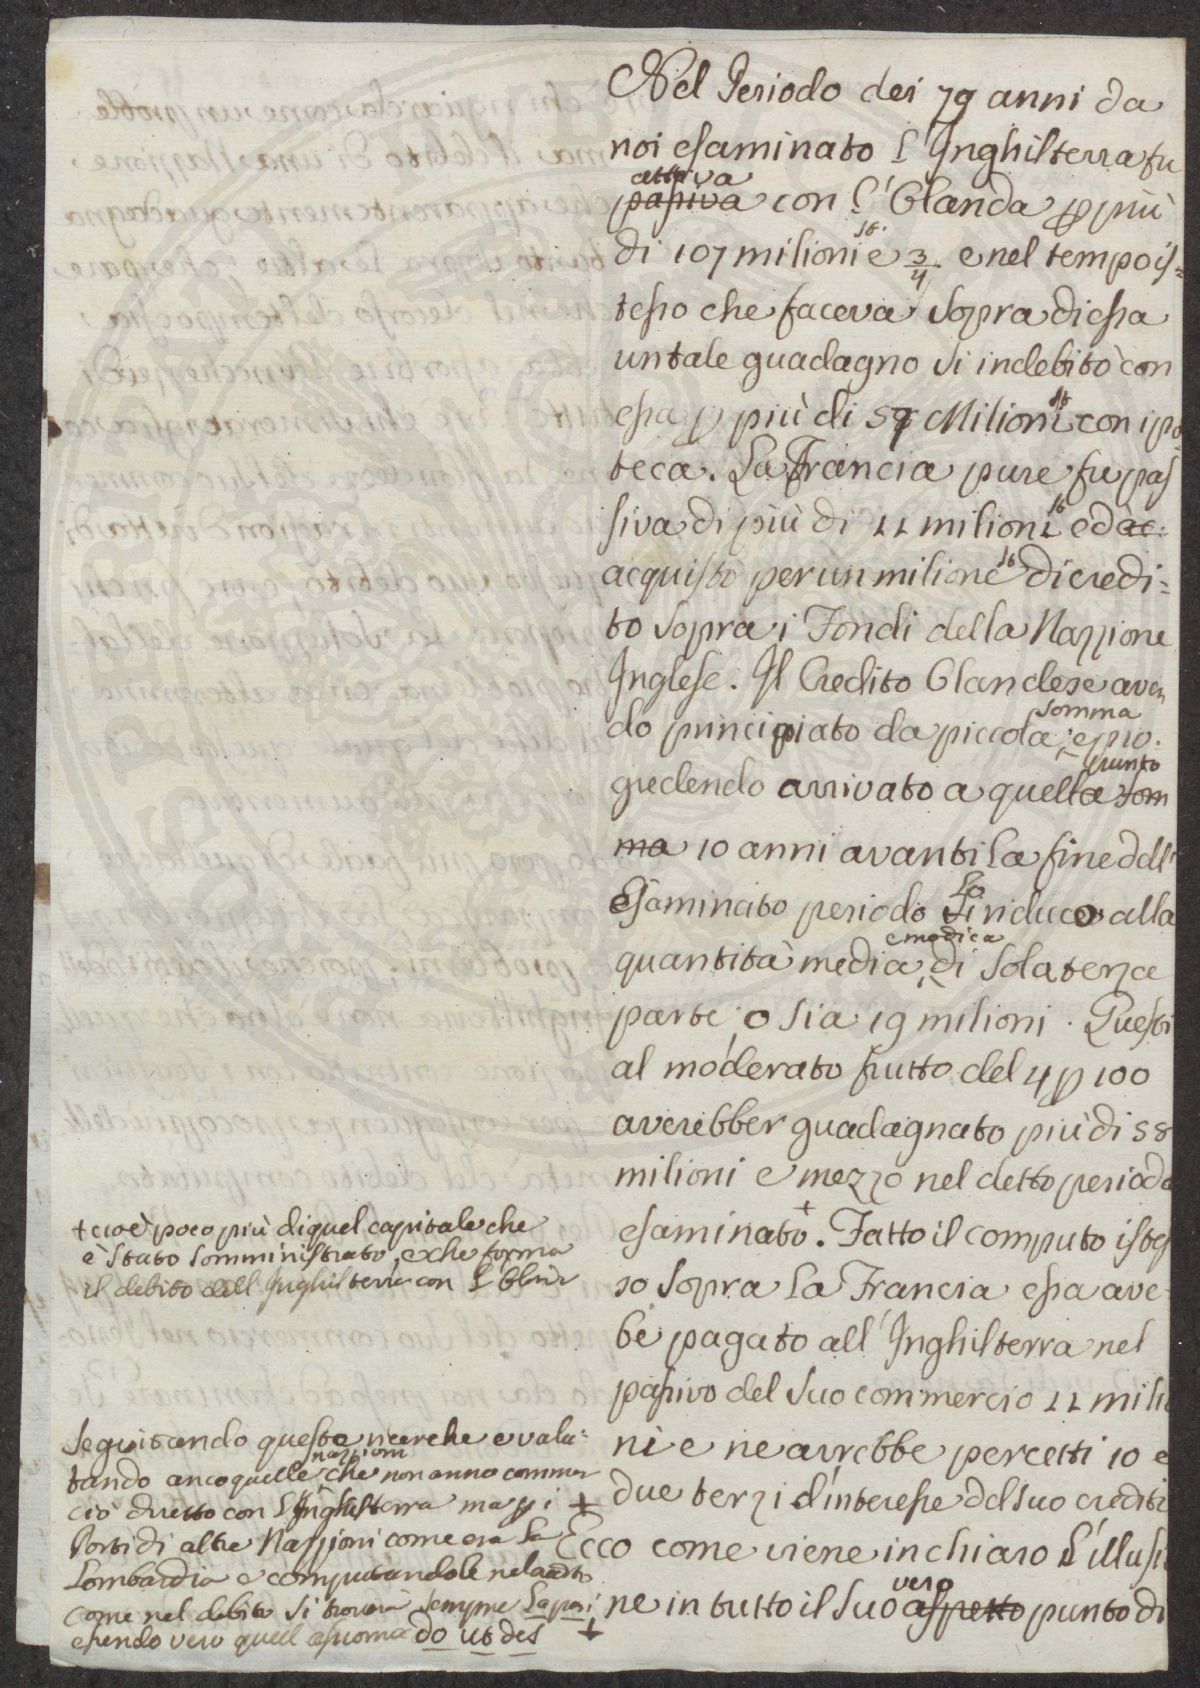 Nel Periodo dei 79 anni da
noi esaminato l'Inghilterra fu
attiva
passiva con l'Olanda p più
di 107 milioni st. e 3/4 e nel tempo is=
tesso che faceva sopra di essa
un tale guadagno si indebitò con
essa p più di 59 Milioni st con ipo
teca. La Francia pure fu pas
siva di più di 11 milioni st ed ac:
acquistò per un milione st di credi=
to sopra i Fondi della Nazzione
Inglese. Il Credito Olandese aven
do principiato da piccola somma, e pro.
gredendo arrivato a quella som punto
ma 10 anni avanti la fine dell'
Esaminato periodo si lo induce alla
quantità media e modica di sola terza
parte o sia 19 milioni. Questi
al moderato frutto del 4 p 100
averebber guadagnato più di 58
milioni e mezzo nel detto periodo
esaminato +. Fatto il computo istes
so sopra la Francia essa ave
be pagato all'Inghilterra nel
passivo del suo commercio 11 milio
ni e ne avrebbe percetti 10 e
due terzi d'interesse del suo credito
Ecco come viene in chiaro l'illusio
ne in tutto il suo aspetto vero punto di
+ cioè poco più di quel capitale che
è stato somministrato, e che forma
il debito dell Inghilterra con l'
Seguitando queste ricerche e valu=
tando anco quelle nazzioni che non anno commer
cio diretto con l'Inghilterra ma p i +
Porti di altre Nazzioni come era la
Lombardia e computandole nel
come nel debito si troverà sempre la pari
essendo vero quell do ut des +